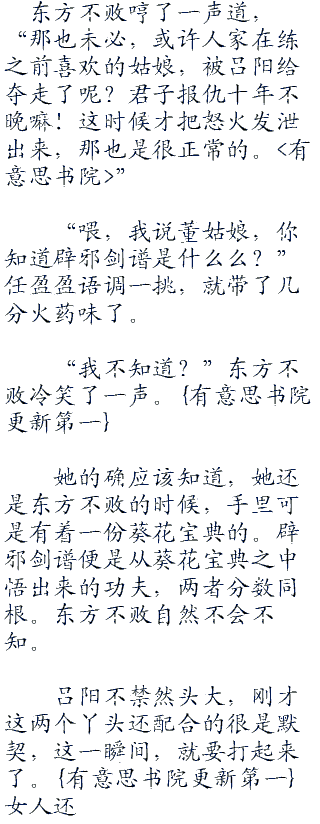 东方不败哼了一声道，
“那也未必，或许人家在练
之前喜欢的姑娘，被吕阳给
夺走了呢？君子报仇十年不
晚嘛！这时候才把怒火发泄
出来，那也是很正常的。<有
意思书院>”
“喂，我说董姑娘，你
知道辟邪剑谱是什么么？”
任盈盈语调一挑，就带了几
分火药味了。
“我不知道？”东方不
败冷笑了一声。{有意思书院
更新第一}
她的确应该知道，她还
是东方不败的时候，手里可
是有着一份葵花宝典的。辟
邪剑谱便是从葵花宝典之中
悟出来的功夫，两者分数同
根。东方不败自然不会不
知。
吕阳不禁然头大，刚才
这两个丫头还配合的很是默
契，这一瞬间，就要打起来
了。{有意思书院更新第一}
女人还